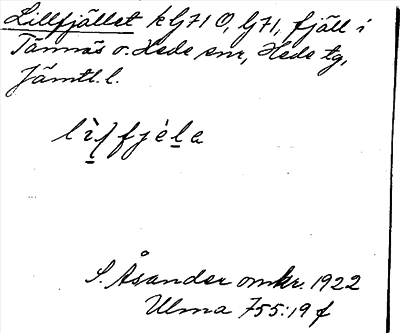 Lillfjället k G71 O, G71, fjäll i
Tännäs o. Hede snr, Hede tg,
Jämtl. l.
S. Åsander omkr. 1922
Ulma 755:19 f